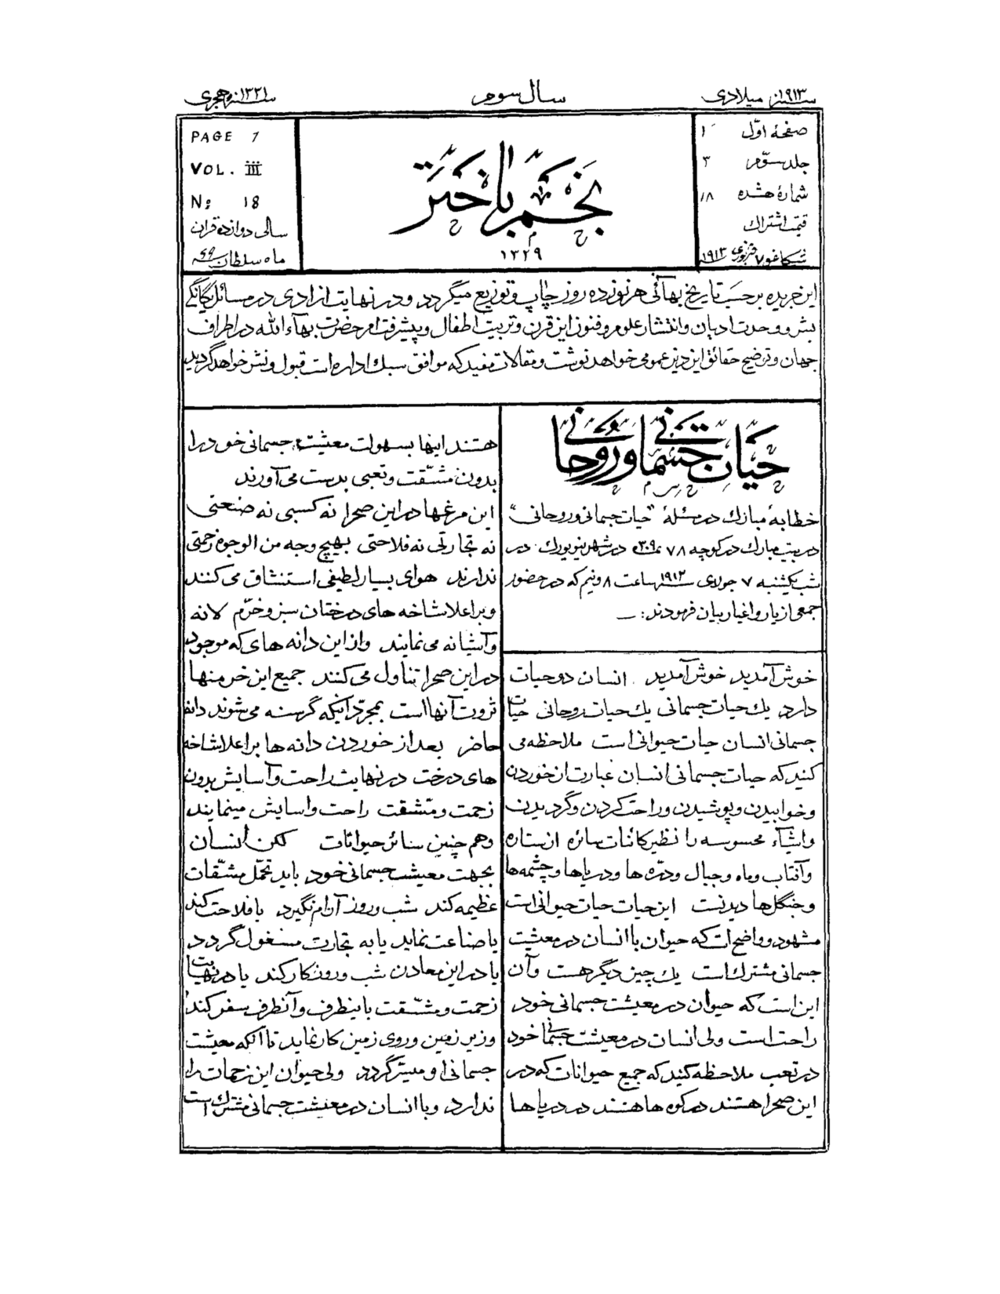 سنه ۱۹۱۳ میلادی
سال سوم
سنه ۱۳۳۱ هجری
صفحهٔ اوّل ۱
جلد سوّم ۳
شمارهٔ هشده ۱۸
قیمت اشتراک
شیکاغو ۷ فبروری ۱۹۱۳
نجم باختر
۱۳۲۹
PAGE 1
VOL. III
No 18
سالی دوازده قران
ماه سلطان سنه ۶۹
این جریده بر حسب تاریخ بهائی هر نوزده روز چاپ و توزیع میگردد و در نهایت ازادی در مسائل یگانگی
بشر و وحدت ادیان و انتشار علوم و فنون این قرن و تربیت اطفال و پیشرفت امر حضرت بهاءالله در اطراف
جهان و توضیح حقائق این دین عمومی خواهد نوشت و مقالات مفید که موافق سبک اداره است قبول و نشر خواهد گردید
حیات جسمانی و روحانی
خطابه مبارک در مسئلهٔ "حیات جسمانی و روحانی"
در بیت مبارک در کوچه ۷۸ نمره ۳۰۹ در شهر نیویورک در
شب یکشنبه ۷ جولای سنه ۱۹۱۲ ساعت ۸ و نیم که در حضور
جمعی از یار و اغیار بیان فرمودند: ــ
خوش آمدید خوش آمدید . انسان دو حیات
دارد یک حیات جسمانی یک حیات روحانی حیات
جسمانی انسان حیات حیوانی است ملاحظه می
کنید که حیات جسمانی انسان عبارت از خوردن
و خوابیدن و پوشیدن و راحت کردن و گردیدن
و اشیاء محسوسه را نظیر کائنات سائره از ستاره
و آفتاب و ماه و جبال و دره ها و دریاها و چشمه ها
و جنگل ها دیدنست این حیات حیات حیوانی است
مشهود و واضح است که حیوان با انسان در معیشت
جسمانی مشترک است یک چیز دیگر هست و آن
این است که حیوان در معیشت جسمانی خود
راحت است ولی انسان در معیشت جسمانی خود
در تعب ملاحظه کنید که جمیع حیوانات که در
این صحرا هستند در کوه ها هستند در دریا ها
هستند اینها بسهولت معیشت جسمانی خود را
بدون مشقت و تعبی بدست می آورند
این مرغها در این صحرا نه کسبی نه صنعتی
نه تجارتی نه فلاحتی بهیچ وجه من الوجوه زحمتی
ندارند هوای بسیار لطیفی استنشاق می کنند
و بر اعلا شاخه های درختان سبز و خرّم لانه
و آشیانه می نمایند و از این دانه های که موجود
در این صحرا تناول می کنند جمیع این خرمنها
ثروت آنها است بمجرّد اینکه گرسنه می شوند دانه
حاضر بعد از خوردن دانه ها بر اعلا شاخه
های درخت در نهایت راحت و آسایش بدون
زحمت و مشقت راحت و اسایش مینمایند
و هم چنین سائر حیوانات لکن انسان
بجهت معیشت جسمانی خود باید تحمّل مشقّات
عظیمه کند شب و روز آرام نگیرد یا فلاحت کند
یا صناعت نماید یا به تجارت مشغول گردد
یا در این معادن شب و روز کار کند یا در نهایت
زحمت و مشقت باینطرف و آنطرف سفر کند
و زیر زمین و روی زمین کار نماید تا آنکه معیشت
جسمانی او میسّر گردد ولی حیوان این زحمات را
ندارد و با انسان در معیشت جسمانی مشترک است